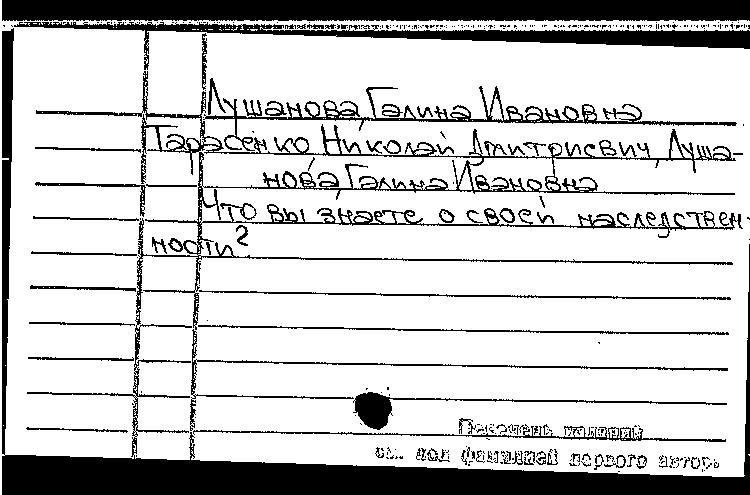 Лушанова, Галина Ивановна
Тарасенко Николай Дмитриевич, Луша-
нова, Галина Ивановна
Что вы знаете о своей наследствен-
ности?
Перечень изданий
см. под фамилией первого автора